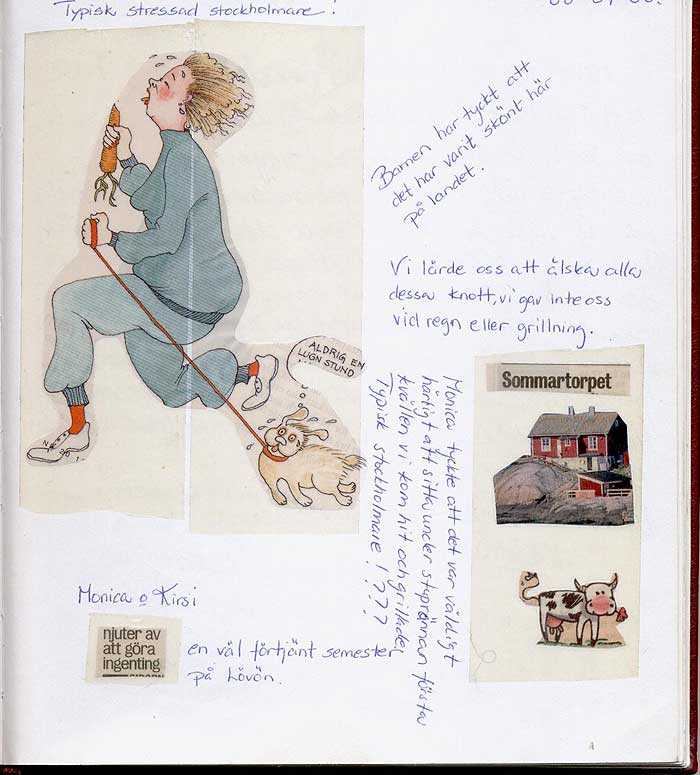 Typisk stressad stockholmare!
Barnen har tyckt att
det har varit skönt här
på landet.
Vi lärde oss att älska alla
dessa knott, vi gav inte oss
vid regn eller grillning.
ALDRIG EN
LUGN STUND
Sommartorpet
Monica tyckte att det var väldigt
härligt att sitta under stuprännan första
kvällen vi kom hit och grillade,
Typisk stockholmare!???
Monica o Kirsi
njuter av
att göra
ingenting
en väl förtjänt semester
på Lövön.